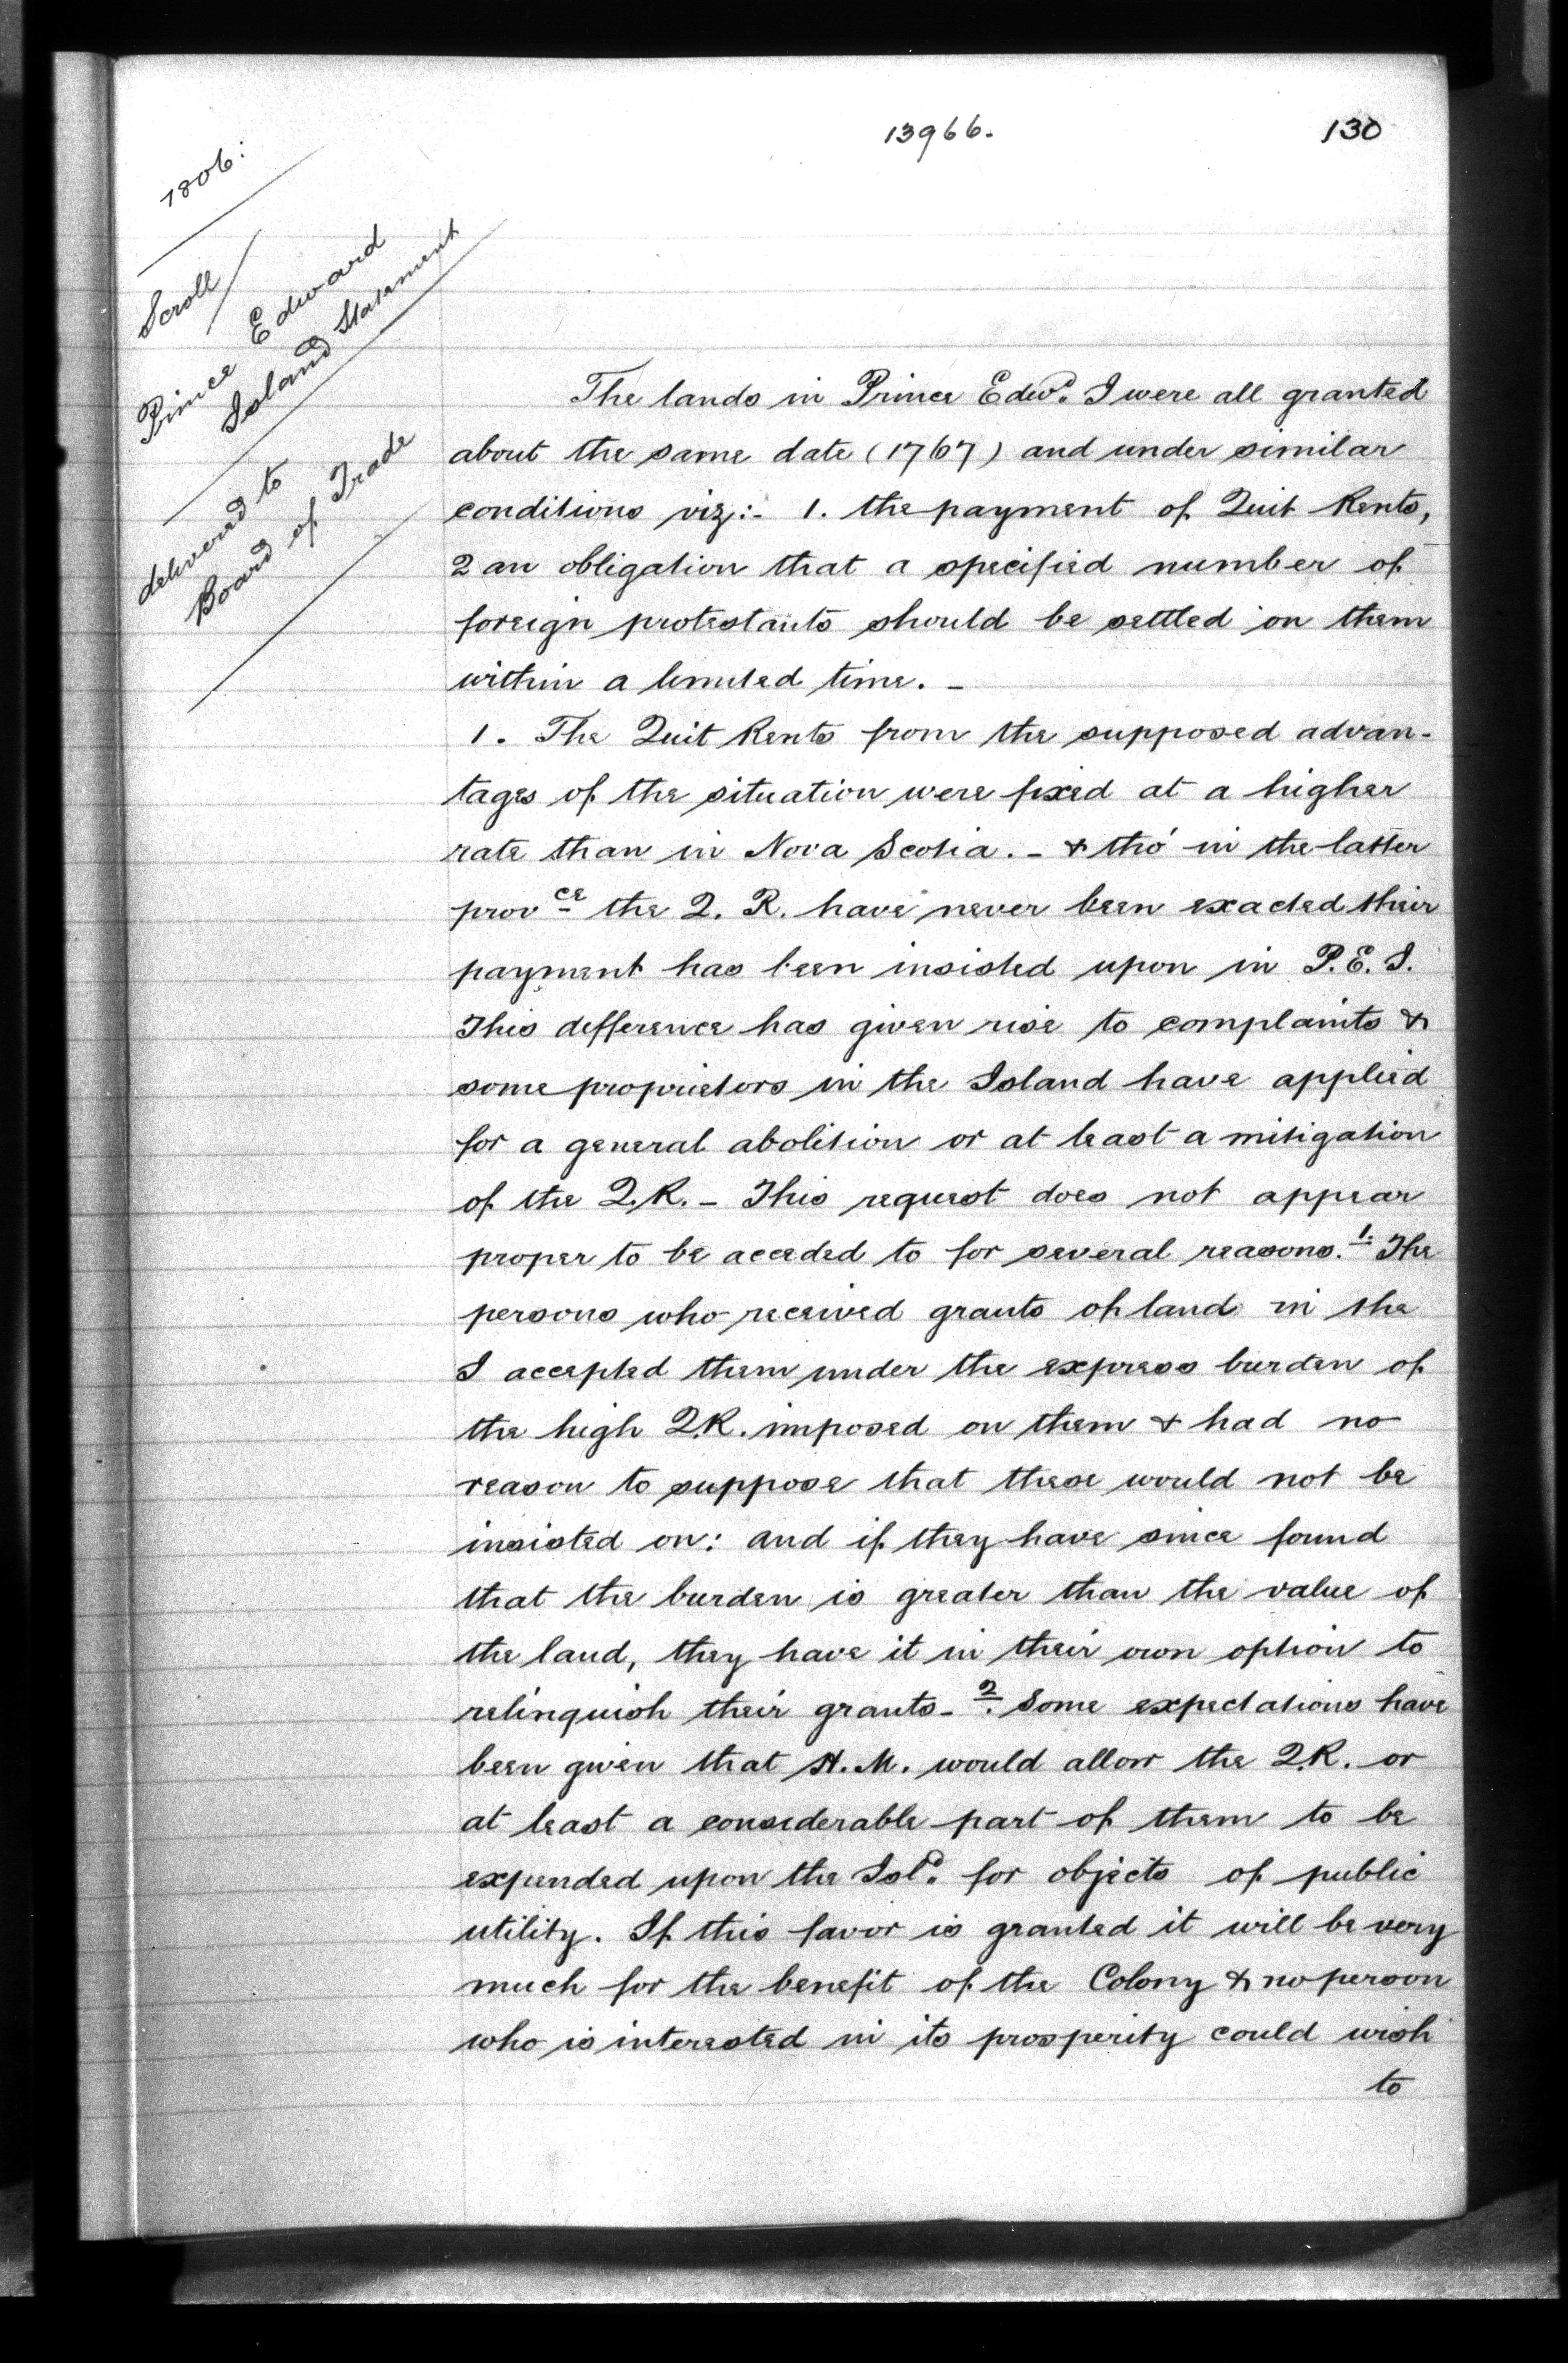 13966.
130
1806:
Scroll
Prince Edward
Island Statement
delivered to
Board of Trade
The lands in Prince Edwd. I were all granted
about the same date (1767) and under similar
conditions viz:- 1. the payment of Quit Rents,
2 an obligation that a specified number of
foreign protestants should be settled on them
within a limited time. -
1. The Quit Rents from the supposed advan-
tages of the situation were fixed at a higher
rate than in Nova Scotia. - & tho' in the latter
provce the Q. R. have never been exacted their
payment has been insisted upon in P. E. I.
This defference has given rise to complaints &
some proprietors in the Island have applied
for a general abolition or at least a mitigation
of the Q.R. - This request does not appear
proper to be acceded to for several reasons. 1. The
persons who received grants of land in the
I accepted them under the express burden of
the high Q.R. imposed on them & had no
reason to suppose that these would not be
insisted on: and if they have since found
that the burden is greater than the value of
the land, they have it in their own option to
relinquish their grants - 2. Some expectations have
been given that H. M. would allow the Q.R. or
at least a considerable part of them to be
expended upon the Isld. for objects of public
utility. If this favor is granted it will be very
much for the benefit of the Colony & no person
who is interested in its prosperity could wish
to